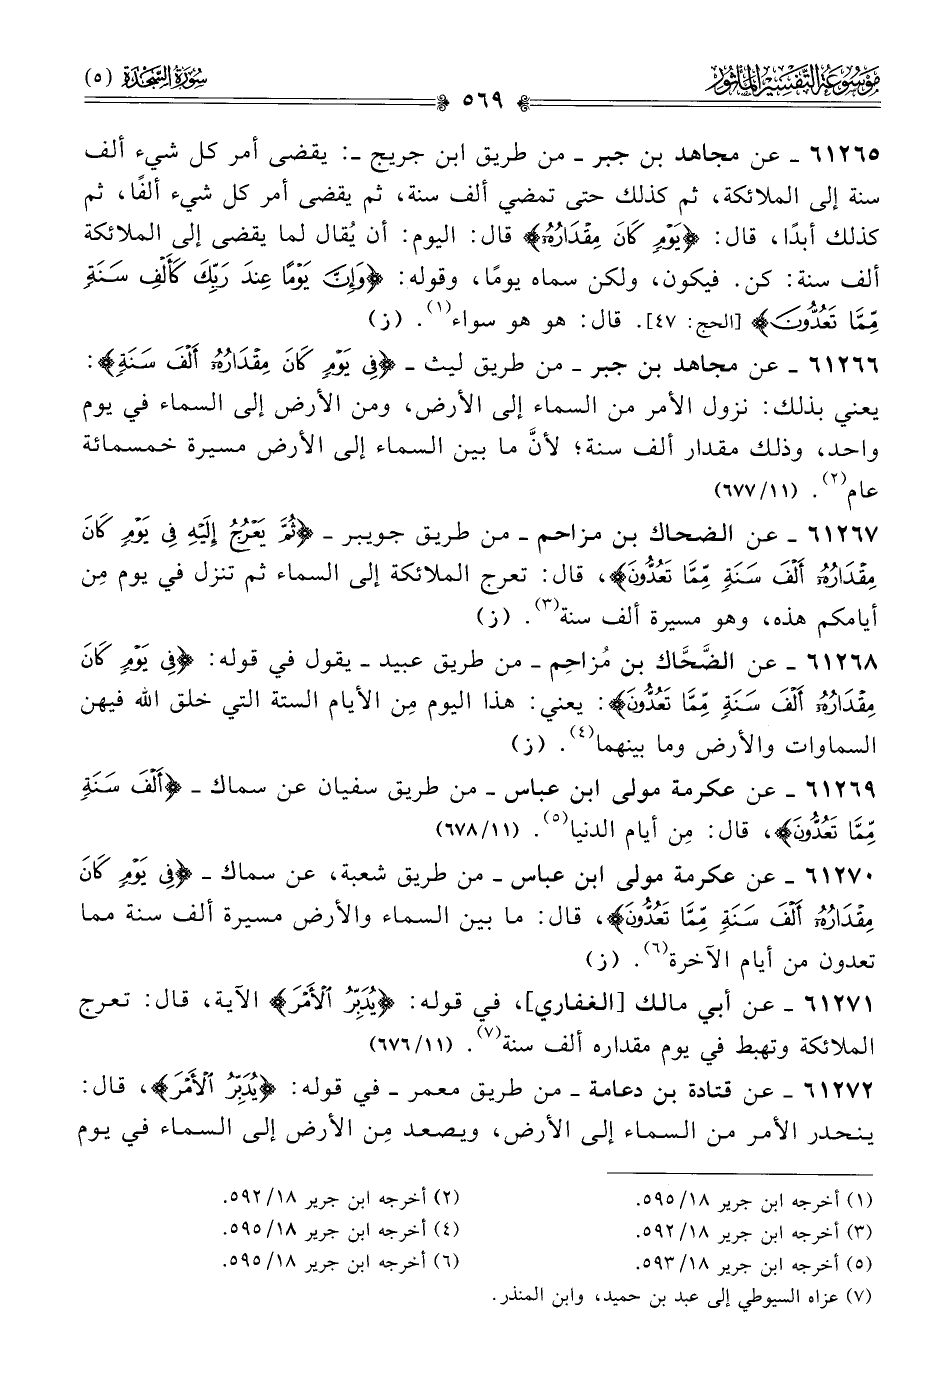 مَوْسُوعَةُ التَّفْسِيْرُ المَأْثُور
سُورَةُ السَّجْدَة (٥)
٥٦٩
٦١٢٦٥ ـ عن مجاهد بن جبر ـ من طريق ابن جريج ـ: يقضى أمر كل شيء ألف
سنة إلى الملائكة، ثم كذلك حتى تمضي ألف سنة، ثم يقضى أمر كل شيء ألفًا، ثم
كذلك أبدًا، قال: ﴿يَوْمٍ كَانَ مِقْدَارُهُۥٓ﴾ قال: اليوم: أن يُقال لما يقضى إلى الملائكة
ألف سنة: كن. فيكون، ولكن سماه يومًا، وقوله: ﴿وَإِنَّ يَوْمًا عِندَ رَبِّكَ كَأَلْفِ سَنَةٍ
مِّمَّا تَعُدُّونَ﴾ [الحج: ٤٧]. قال: هو هو سواء(١). (ز)
٦١٢٦٦ ـ عن مجاهد بن جبر ـ من طريق ليث ـ ﴿فِى يَوْمٍ كَانَ مِقْدَارُهُۥٓ أَلْفَ سَنَةٍ﴾:
يعني بذلك: نزول الأمر من السماء إلى الأرض، ومن الأرض إلى السماء في يوم
واحد، وذلك مقدار ألف سنة؛ لأنَّ ما بين السماء إلى الأرض مسيرة خمسمائة
عام(٢). (١١/ ٦٧٧)
٦١٢٦٧ ـ عن الضحاك بن مزاحم ـ من طريق جويبر ـ ﴿ثُمَّ يَعْرُجُ إِلَيْهِ فِى يَوْمٍ كَانَ
مِقْدَارُهُۥٓ أَلْفَ سَنَةٍ مِّمَّا تَعُدُّونَ﴾، قال: تعرج الملائكة إلى السماء ثم تنزل في يوم مِن
أيامكم هذه، وهو مسيرة ألف سنة(٣). (ز)
٦١٢٦٨ ـ عن الضَّحَّاك بن مُزاحِم ـ من طريق عبيد ـ يقول في قوله: ﴿فِى يَوْمٍ كَانَ
مِقْدَارُهُۥٓ أَلْفَ سَنَةٍ مِّمَّا تَعُدُّونَ﴾: يعني: هذا اليوم مِن الأيام الستة التي خلق الله فيهن
السماوات والأرض وما بينهما(٤). (ز)
٦١٢٦٩ ـ عن عكرمة مولى ابن عباس ـ من طريق سفيان عن سماك ـ ﴿أَلْفَ سَنَةٍ
مِّمَّا تَعُدُّونَ﴾، قال: مِن أيام الدنيا(٥). (١١/ ٦٧٨)
٦١٢٧٠ ـ عن عكرمة مولى ابن عباس ـ من طريق شعبة، عن سماك ـ ﴿فِى يَوْمٍ كَانَ
مِقْدَارُهُۥٓ أَلْفَ سَنَةٍ مِّمَّا تَعُدُّونَ﴾، قال: ما بين السماء والأرض مسيرة ألف سنة مما
تعدون من أيام الآخرة(٦). (ز)
٦١٢٧١ ـ عن أبي مالك [الغفاري]، في قوله: ﴿يُدَبِّرُ ٱلْأَمْرَ﴾ الآية، قال: تعرج
الملائكة وتهبط في يوم مقداره ألف سنة(٧). (١١/ ٦٧٦)
٦١٢٧٢ ـ عن قتادة بن دعامة ـ من طريق معمر ـ في قوله: ﴿يُدَبِّرُ ٱلْأَمْرَ﴾، قال:
ينحدر الأمر من السماء إلى الأرض، ويصعد مِن الأرض إلى السماء في يوم
(١) أخرجه ابن جرير ١٨/ ٥٩٥.
(٢) أخرجه ابن جرير ١٨/ ٥٩٢.
(٣) أخرجه ابن جرير ١٨/ ٥٩٢.
(٤) أخرجه ابن جرير ١٨/ ٥٩٥.
(٥) أخرجه ابن جرير ١٨/ ٥٩٣.
(٦) أخرجه ابن جرير ١٨/ ٥٩٥.
(٧) عزاه السيوطي إلى عبد بن حميد، وابن المنذر.